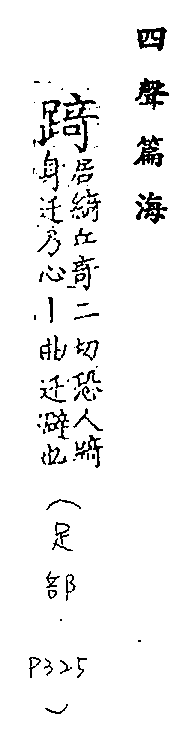 四聲篇海
踦居綺丘奇二切恐人將
身迁乃心丨曲迂避也
（足部．P325）